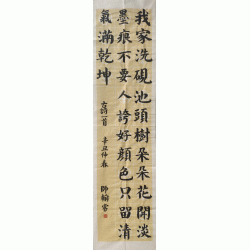 我家洗硯池頭樹朵朵花開淡
墨痕不要人誇好顏色只留清
氣滿乾坤
古詩一首 辛丑仲春